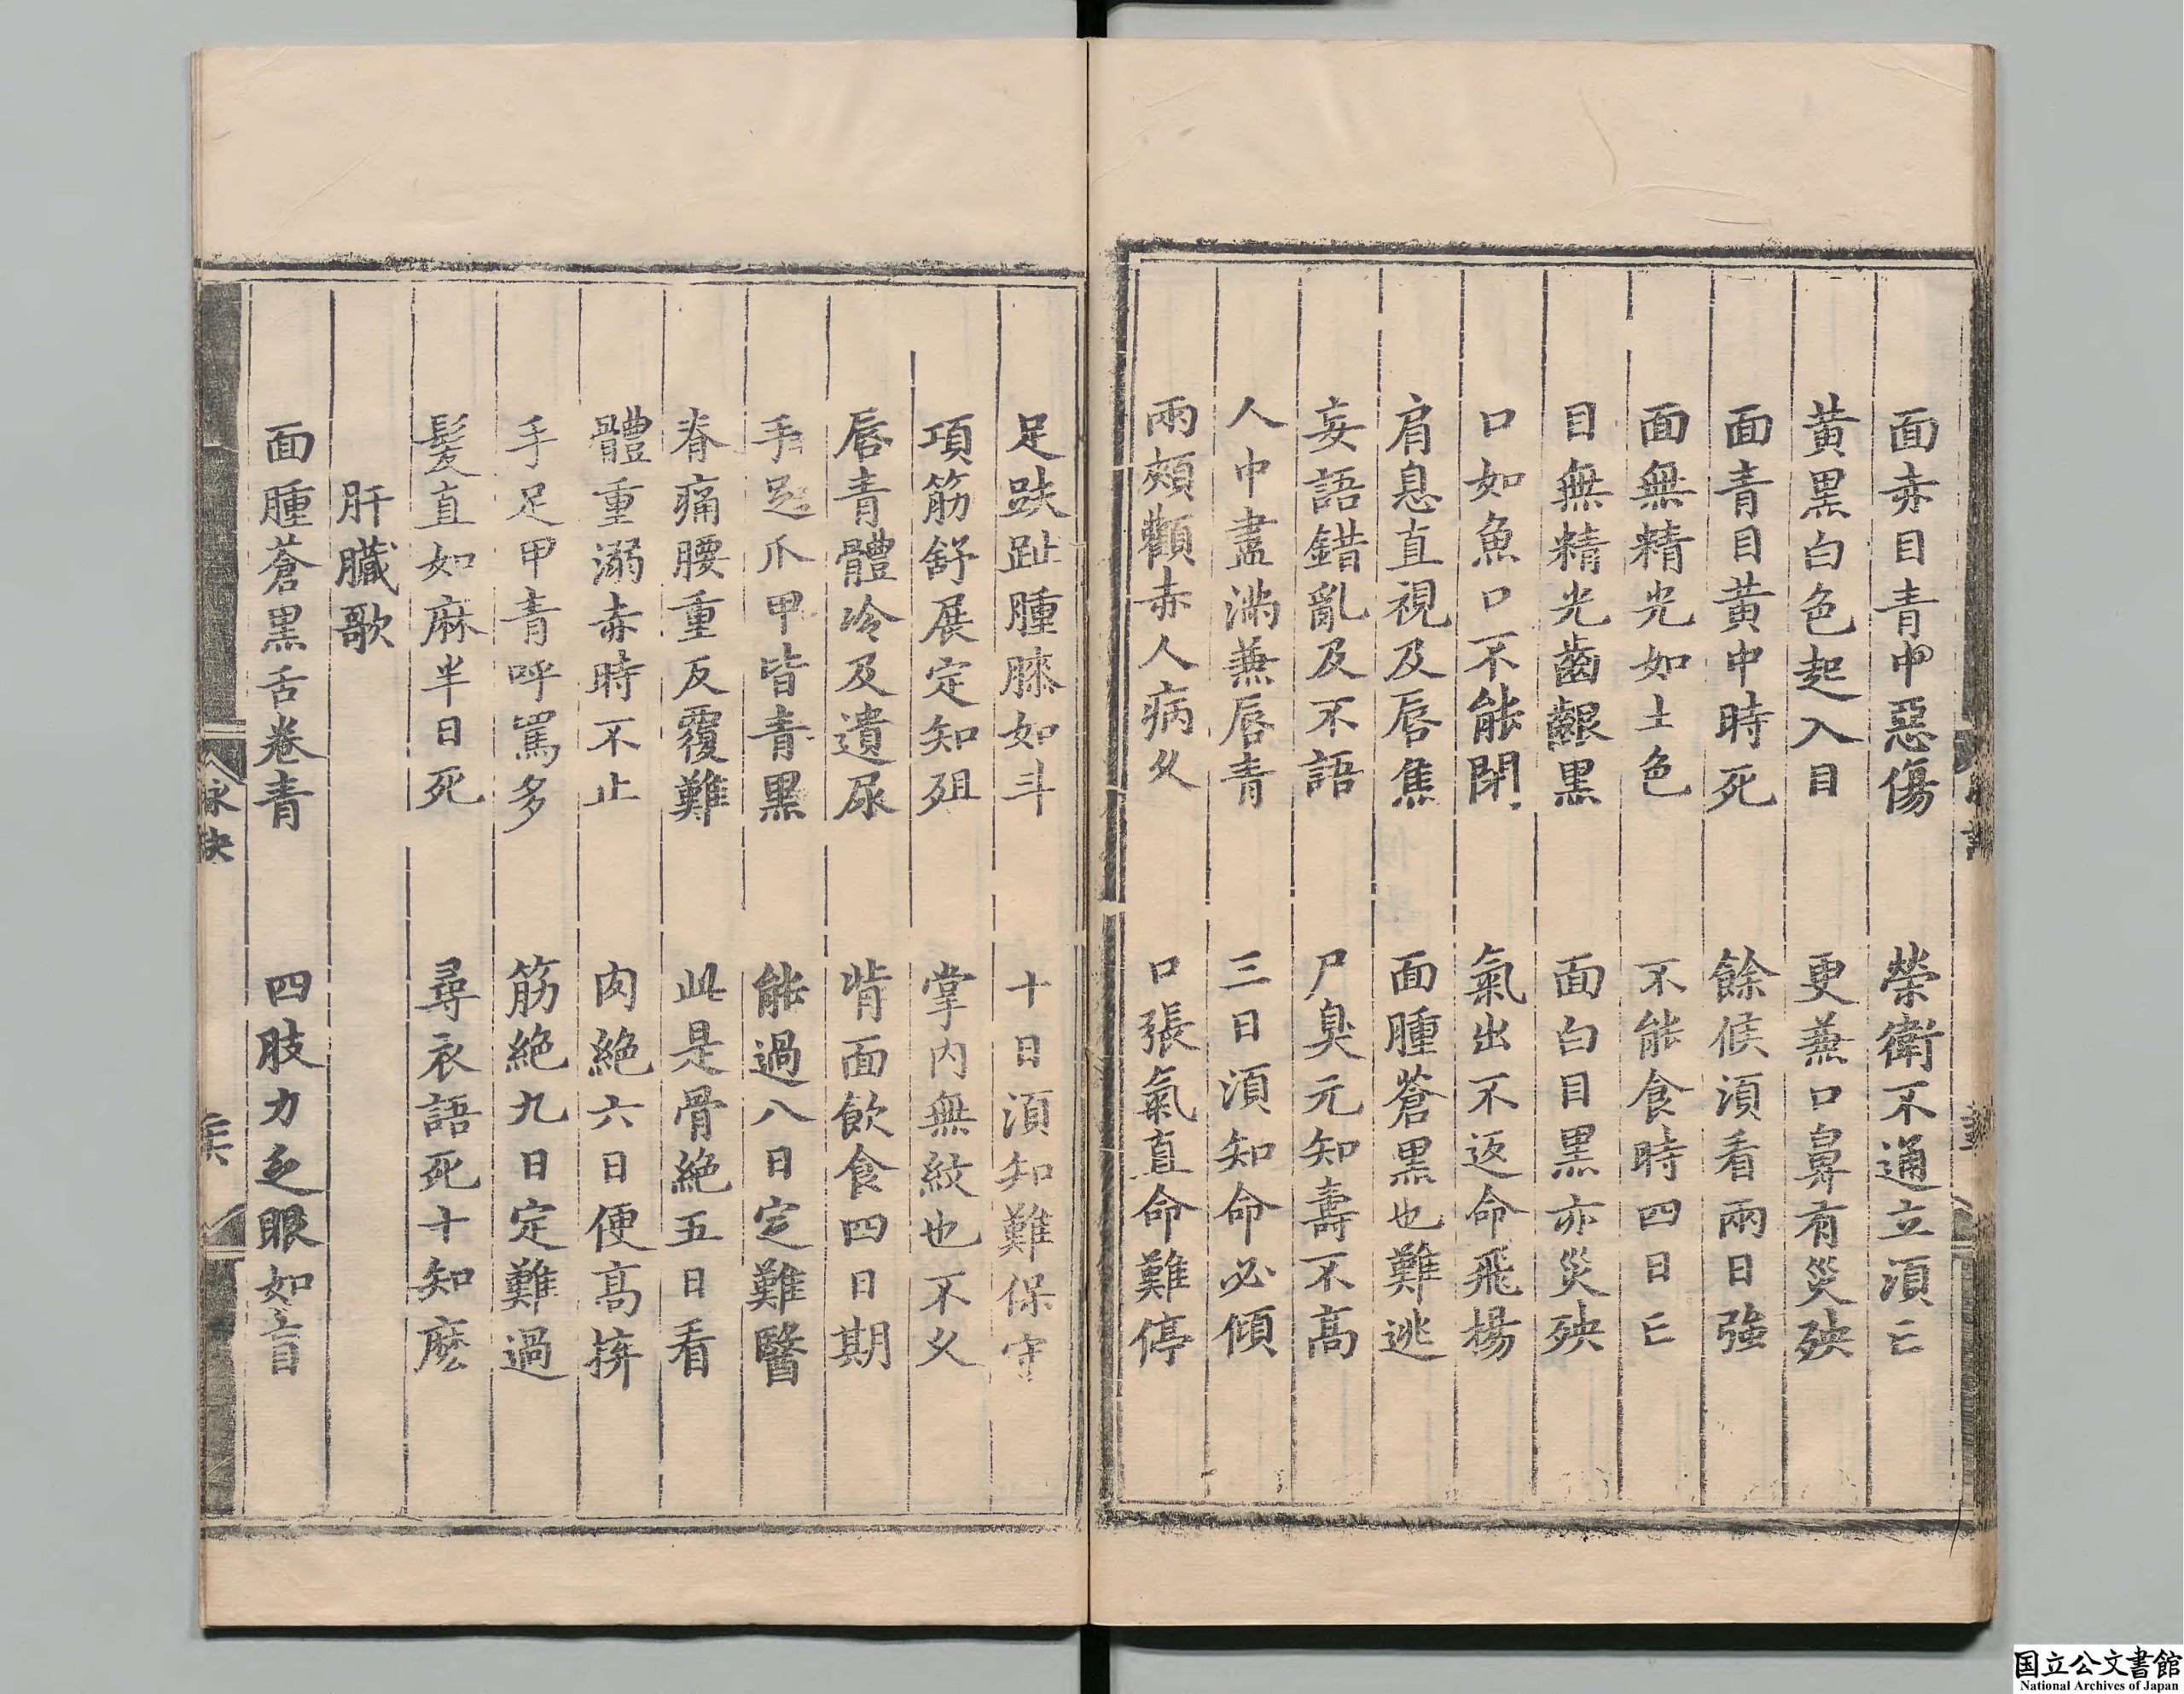 面赤目青申惡傷　榮衛不通立湏亡
黄黒白色起入目　更兼口鼻有災殃
面青目黄中時死　餘候湏看兩日強
面無精光如土色　不能食時四日亡
目無精光齒齦黒　面白目黒亦災殃
口如魚口不能閉　氣出不返命飛楊
肩息直視及唇焦　面腫蒼黒也難逃
妄語錯亂及不語　尸臭元知壽不高
人中盡滿兼唇青　三日湏知命必傾
兩頰顴赤人病久　口張氣直命難停
足趺趾腫膝如斗　十日湏知難保守
項筋舒展定知殂　掌内無紋也不久
唇青體冷及遺尿　背面飲食四日期
手足爪甲皆青黒　能過八日定難醫
脊痛腰重反覆難　此是骨絶五日看
體重溺赤時不止　肉絶六日便高拚
手足甲青呼罵多　筋絶九日定難過
髮直如麻半日死　尋衣語死十知麽
肝臟歌
面腫蒼黒舌卷青　四肢力乏眼如盲
脉訣
国立公文書館
National Archives of Japan